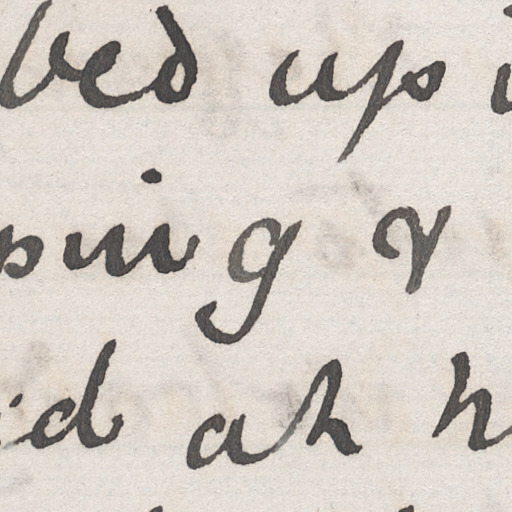 bed up
ping &
id ah h